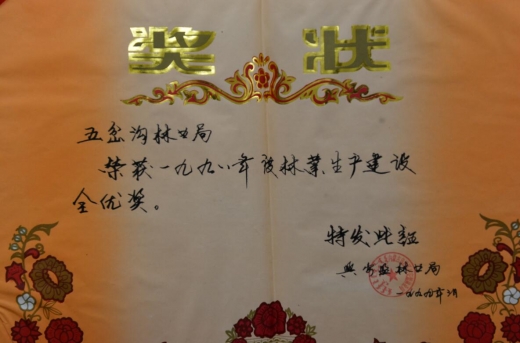 奖状
五岔沟林业局
荣获一九九八年度林业生产建设
全优奖。
特发此证
兴安盟林业局
一九九九年二月